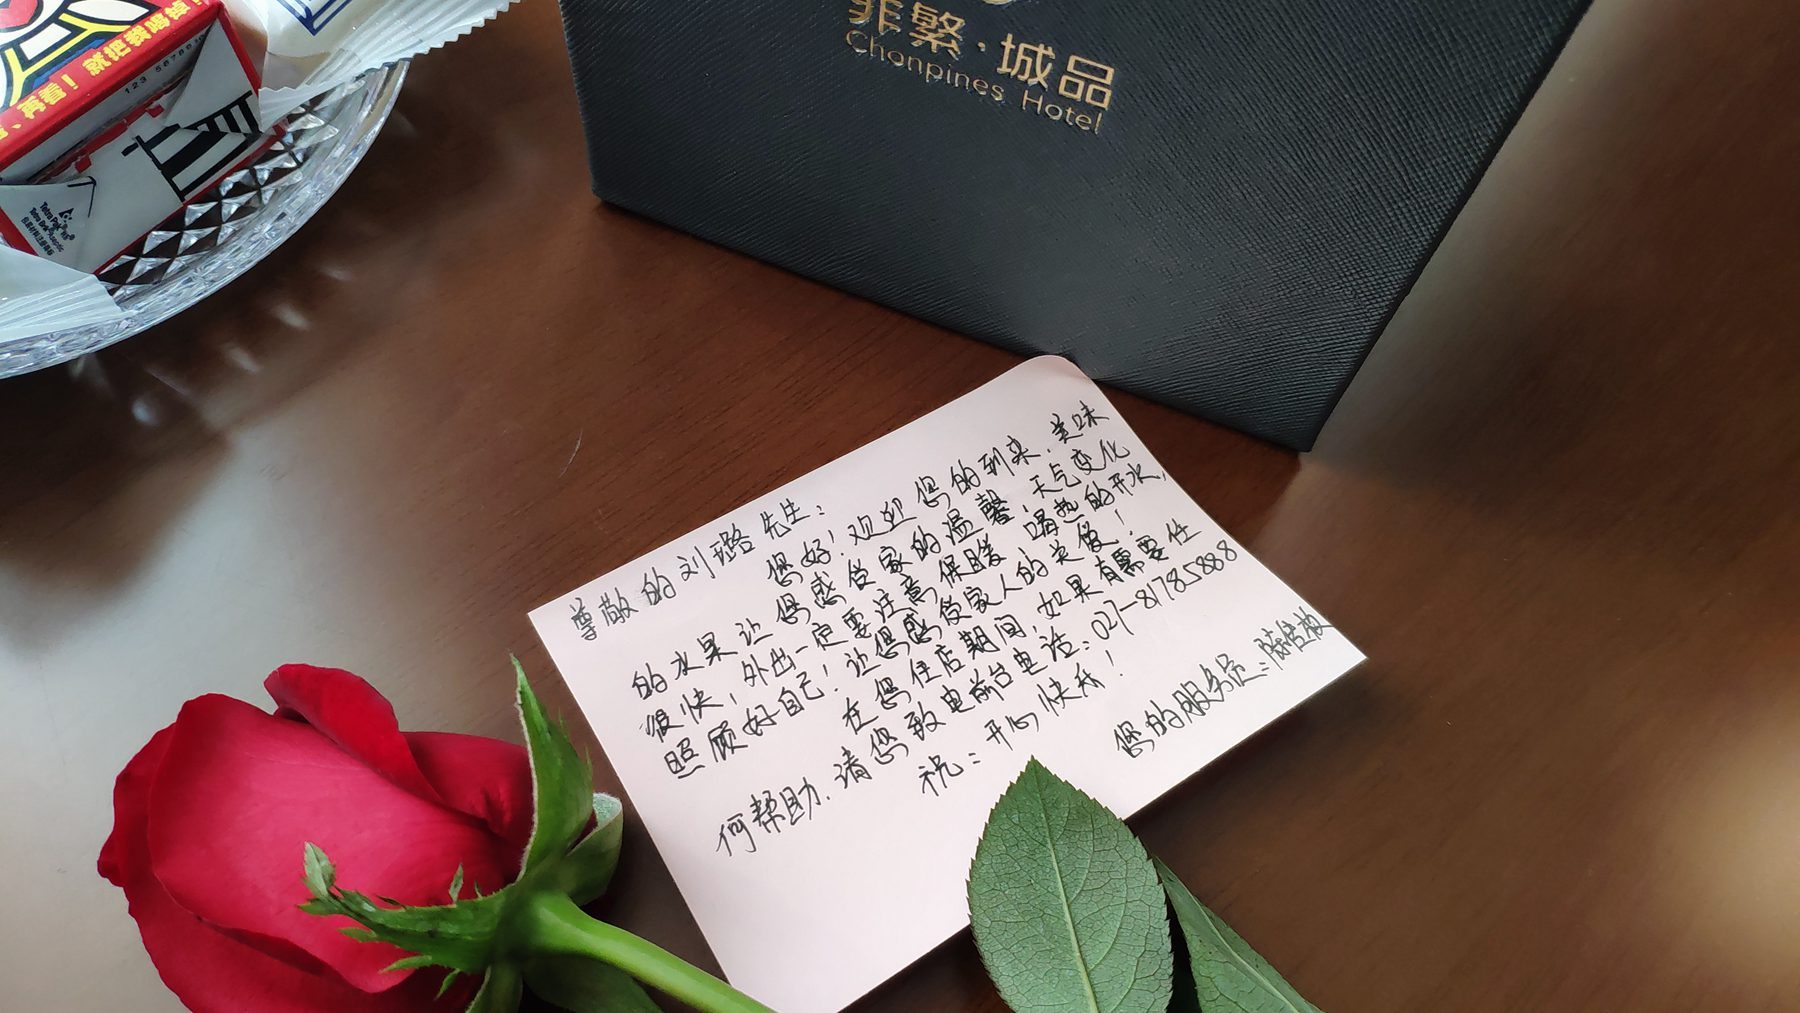 非繁·城品
Chonpines Hotel
就把我喝掉
、再看!
123 567890
Tetra Pak
Tetra Brik Aseptic
尊敬的刘璐先生:
您好!欢迎您的到来.美味
的水果让您感受家的温馨,天气变化
很快,外出一定要注意保暖 喝热的开水,
照顾好自己!让您感受家人的关爱!
在您住店期间,如果有需要任
何帮助.请您致电前台电话:027-81785888
祝:开心快乐!
您的服务员:陈